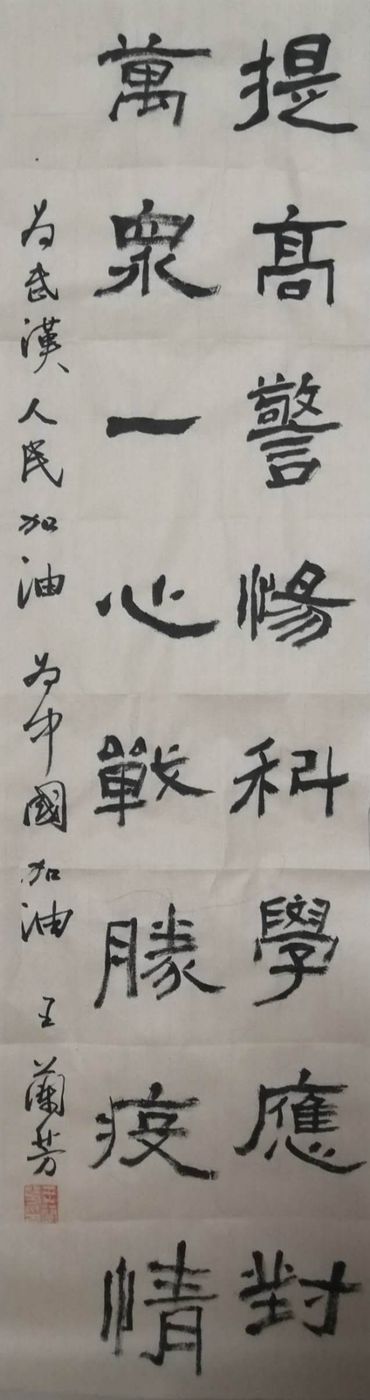 提高警惕科學應對
萬衆一心戰勝疫情
为武漢人民加油 为中國加油 王蘭芳